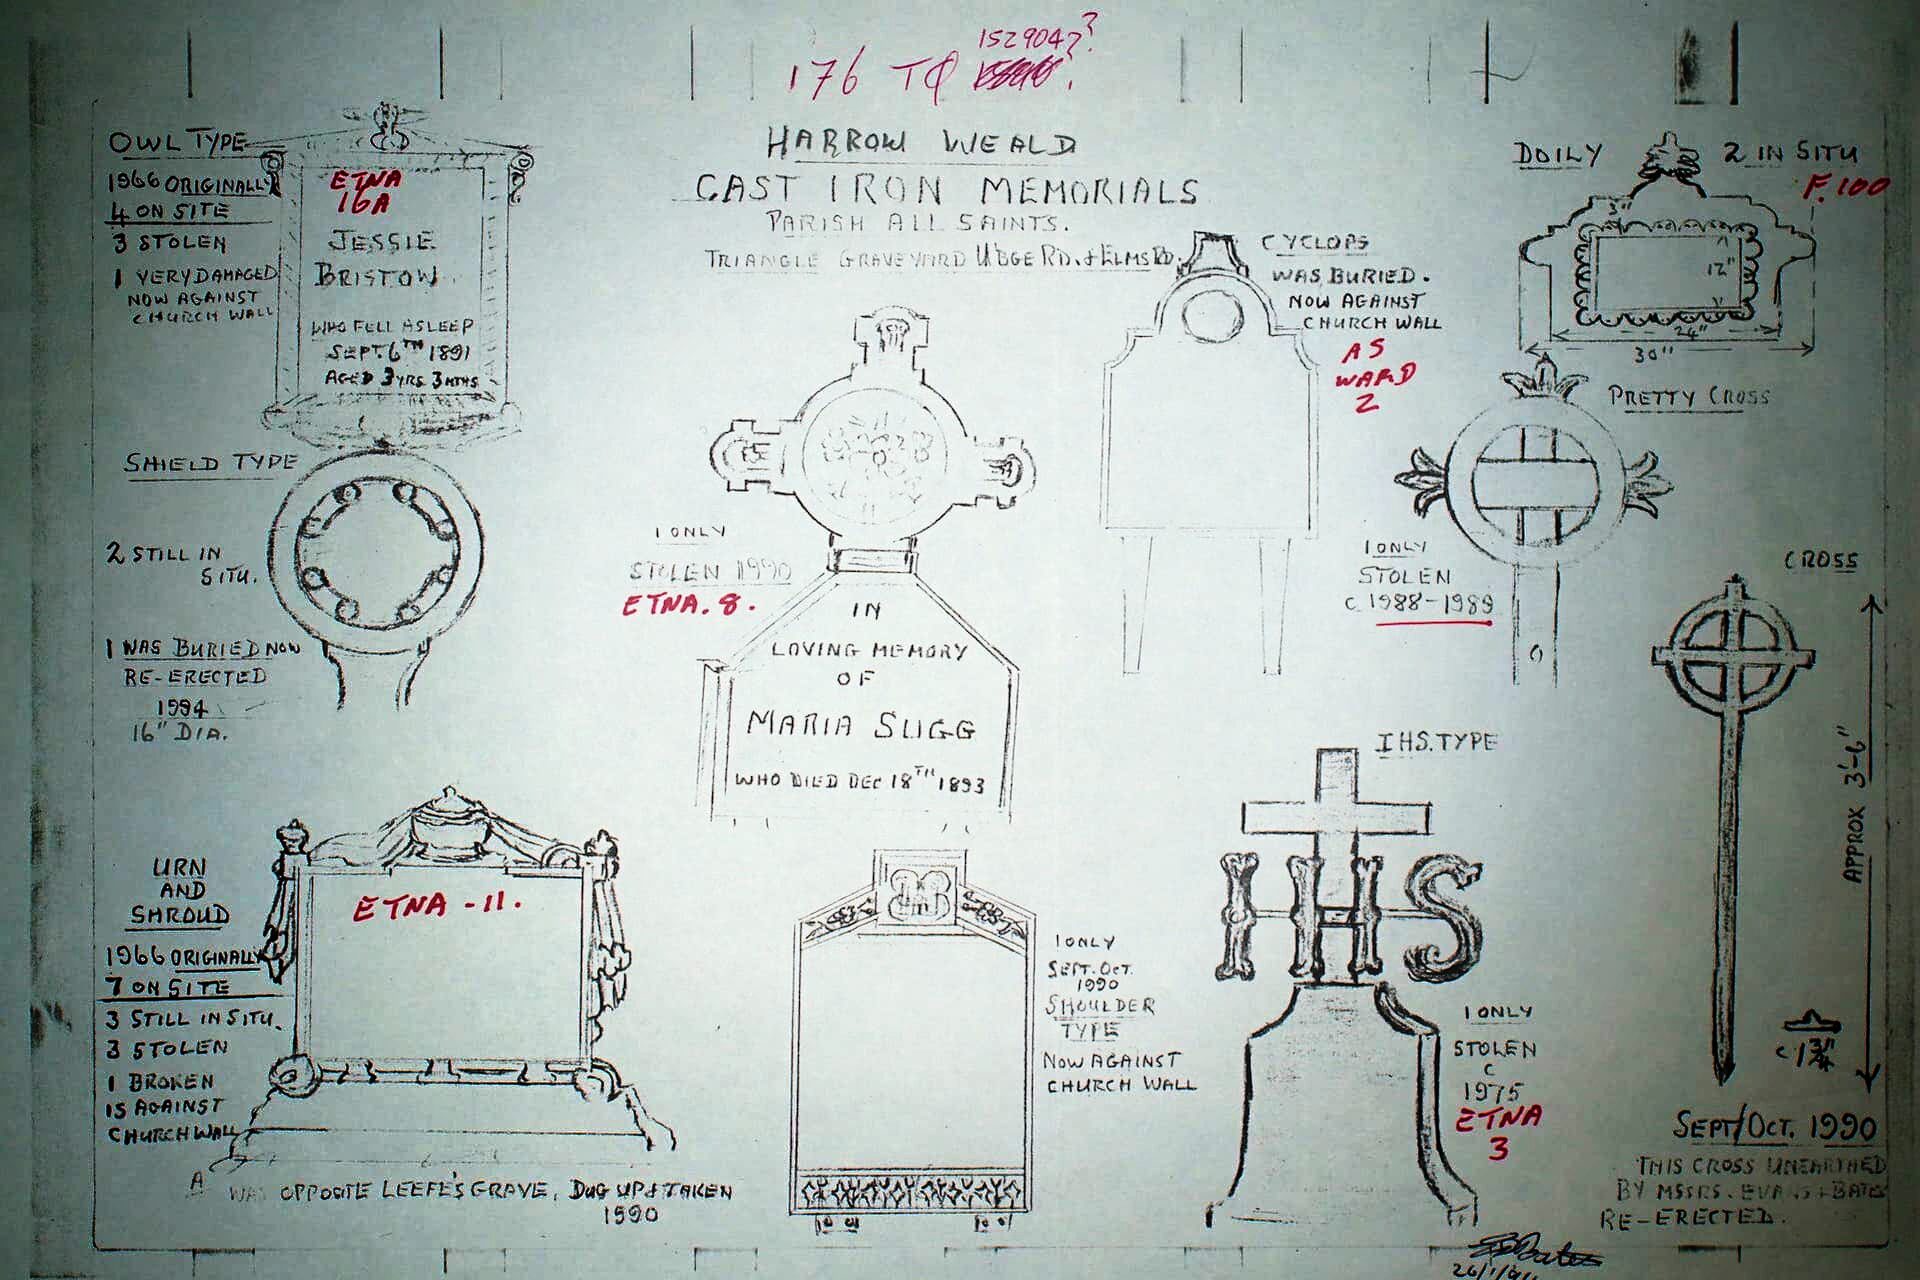 1529047?
176 TO
HARROW WEALD
CAST IRON MEMORIALS
PARISH ALL SAINTS.
TRIANGLE GRAVEYARD U'BGE RD. & ELMS RD.
OWL TYPE
1966 ORIGINALLY
4 ON SITE
3 STOLEN
1 VERY DAMAGED
NOW AGAINST
CHURCH WALL
ETNA
16A
JESSIE
BRISTOW
WHO FELL ASLEEP
SEPT. 6TH 1891
AGED 3 YRS. 3 MTHS
SHIELD TYPE
2 STILL IN
SITU.
1 WAS BURIED NOW
RE-ERECTED
1994
16" DIA.
URN
AND
SHROUD
1966 ORIGINALLY
7 ON SITE
3 STILL IN SITU.
3 STOLEN
1 BROKEN
IS AGAINST
CHURCH WALL
ETNA - 11.
A WAS OPPOSITE LEEFE'S GRAVE, DUG UP & TAKEN
1990
1 ONLY
STOLEN 1990
ETNA. 8.
IN
LOVING MEMORY
OF
MARIA SUGG
WHO DIED DEC 18TH 1893
1 ONLY
SEPT. OCT.
1990
SHOULDER
TYPE
NOW AGAINST
CHURCH WALL
CYCLOPS
WAS BURIED.
NOW AGAINST
CHURCH WALL
AS
WARD
2
DOILY
2 IN SITU
F. 100
3"
12"
24"
30"
PRETTY CROSS
1 ONLY
STOLEN
c. 1988-1989
IHS. TYPE
IHS
1 ONLY
STOLEN
C
1975
ETNA
3
CROSS
APPROX 3'-6"
c 1 3/4"
SEPT/OCT. 1990
THIS CROSS UNEARTHED
BY MSSRS. EVANS & BATES
RE-ERECTED.
Bates